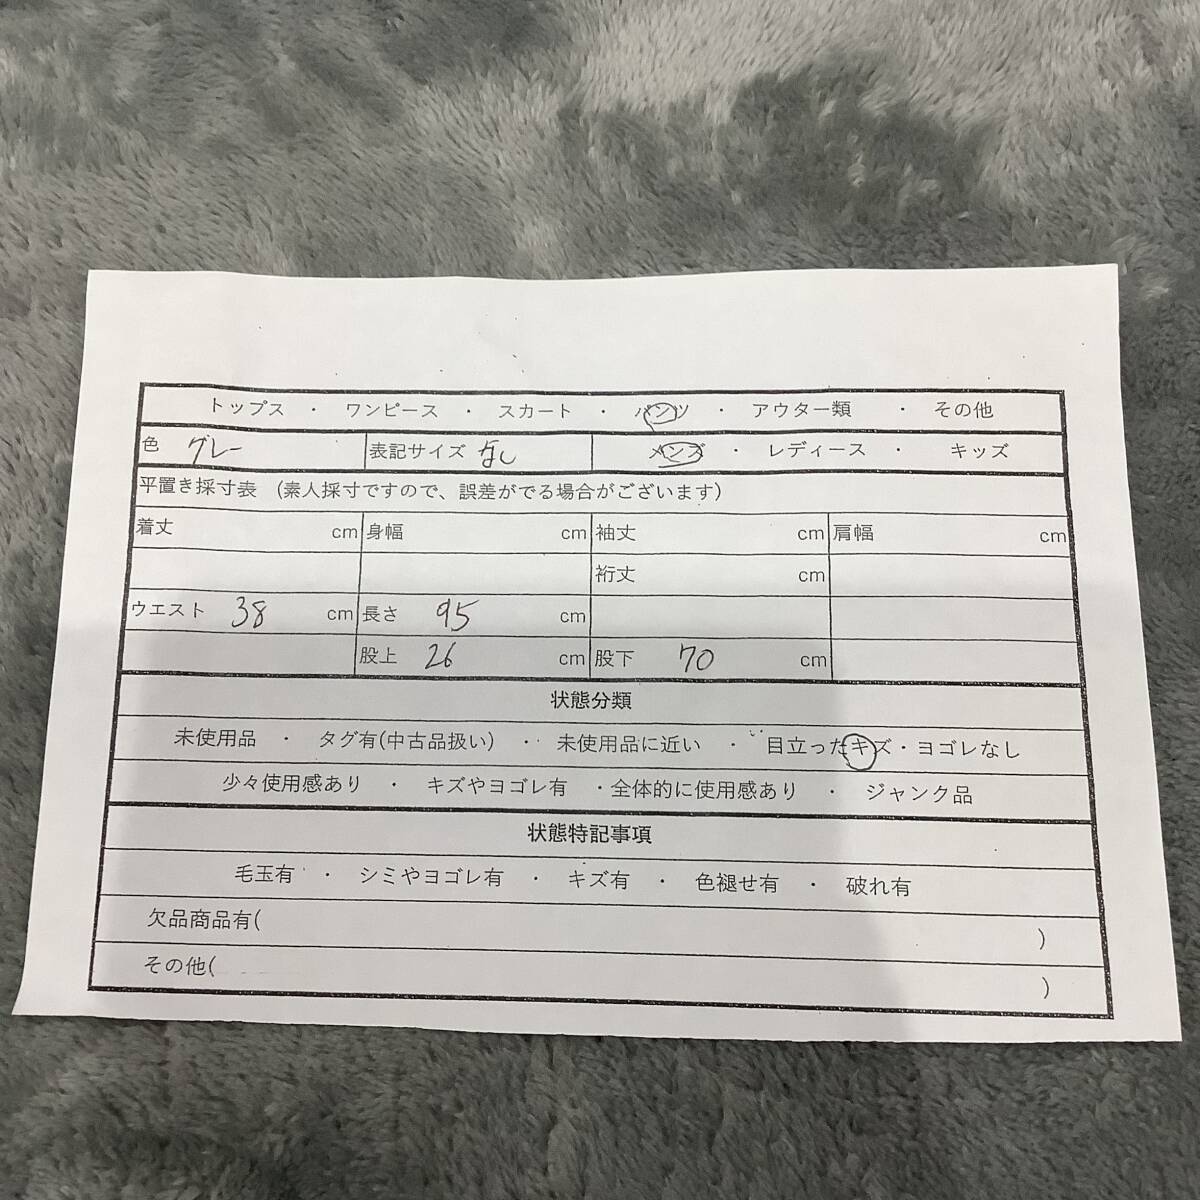 トップス ・ ワンピース ・ スカート ・ パンツ ・ アウター類 ・ その他
色 グレー 表記サイズ なし メンズ ・ レディース ・ キッズ
平置き採寸表 (素人採寸ですので、誤差がでる場合がございます)
着丈 cm 身幅 cm 袖丈 cm 肩幅 cm
裄丈 cm
ウエスト 38 cm 長さ 95 cm
股上 26 cm 股下 70 cm
状態分類
未使用品 ・ タグ有(中古品扱い) ・ 未使用品に近い ・ 目立ったキズ・ヨゴレなし
少々使用感あり ・ キズやヨゴレ有 ・全体的に使用感あり ・ ジャンク品
状態特記事項
毛玉有 ・ シミやヨゴレ有 ・ キズ有 ・ 色褪せ有 ・ 破れ有
欠品商品有( )
その他( )